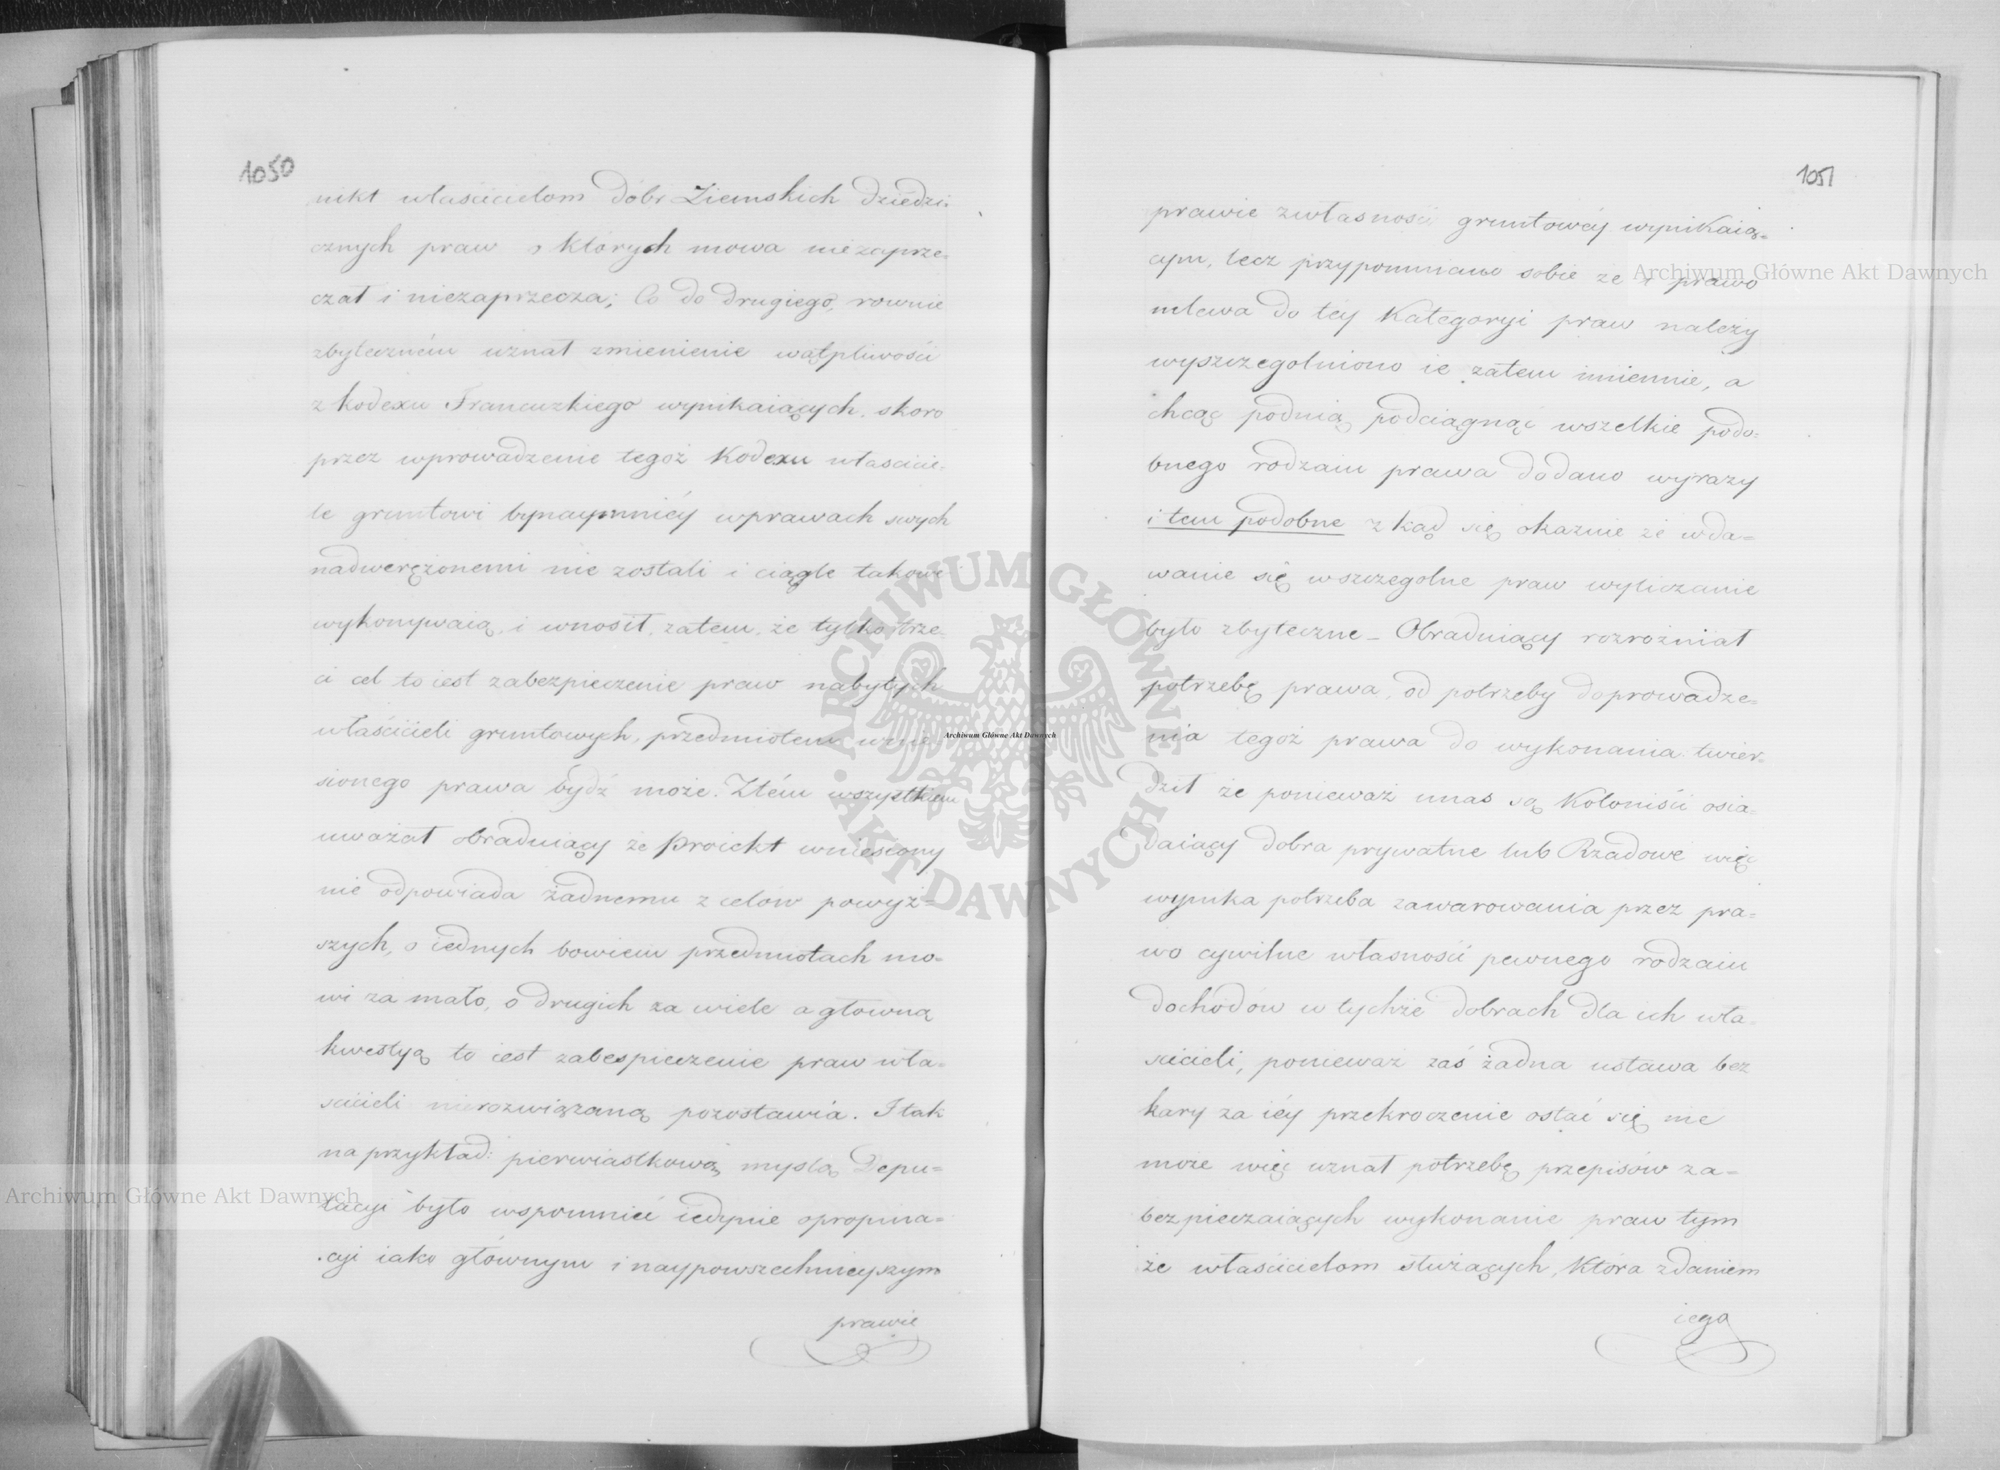 1050
nikt właścicielom dóbr Ziemskich dziedzi-
cznych praw o których mowa niezaprze-
czał i niezaprzecza; Co do drugiego, rownie
zbyteczném uznał zmienienie wątpliwości
z kodexu Francuzkiego wynikaiących, skoro
przez wprowadzenie tegoż Kodexu właścicie-
le gruntowi bynaymniéy wprawach swych
nadwerężonemi nie zostali i ciągle takowe
wykonywaią, i wnosił, zatem, że tylko trze-
ci cel to iest zabezpieczenie praw nabytych
właścicieli gruntowych, przedmiotem wnie-
sionego prawa bydź może. Ztém wszystkiem
uważał obraduiący że Proiekt wniesiony
nie odpowiada żadnemu z celów powyż-
szych, o iednych bowiem przedmiotach mo-
wi za mało, o drugich za wiele a główną
kwestyą to iest zabespieczenie praw wła-
ścicieli nierozwiązaną pozostawia. I tak
na przykład: pierwiastkową myslą Depu-
tacyi było wspomnieć iedynie opropina-
cyi iako głównym i naypowszechnieyszym
prawie
1051
prawie zwłasności gruntowéy wynikaią-
cym, lecz przypomniano sobie że i prawo
mlewa do téy Kategoryi praw należy
wyszczegolniono ie zatem imiennie, a
chcąc podnią podciągnąć wszelkie podo-
bnego rodzaiu prawa dodano wyrazy
i tem podobne z kąd się okazuie że wda-
wanie się w szczegolne praw wyliczanie
było zbyteczne - Obraduiący rozrożniał
potrzebę prawa, od potrzeby doprowadze-
nia tegoż prawa do wykonania twier-
dził że ponieważ unas są Koloniści osia-
daiący dobra prywatne lub Rządowe więc
wynika potrzeba zawarowania przez pra-
wo cywilne własności pewnego rodzaiu
dochodów w tychże dobrach dla ich wła-
ścicieli, ponieważ zaś żadna ustawa bez
kary za iéy przekroczenie ostać się nie
może więc uznał potrzebę przepisów za-
bezpieczaiących wykonanie praw tym
że właścicielom służących, Która zdaniem
iego
Archiwum Główne Akt Dawnych
Archiwum Główne Akt Dawnych
Archiwum Główne Akt Dawnych
ARCHIWUM GŁÓWNE AKT DAWNYCH